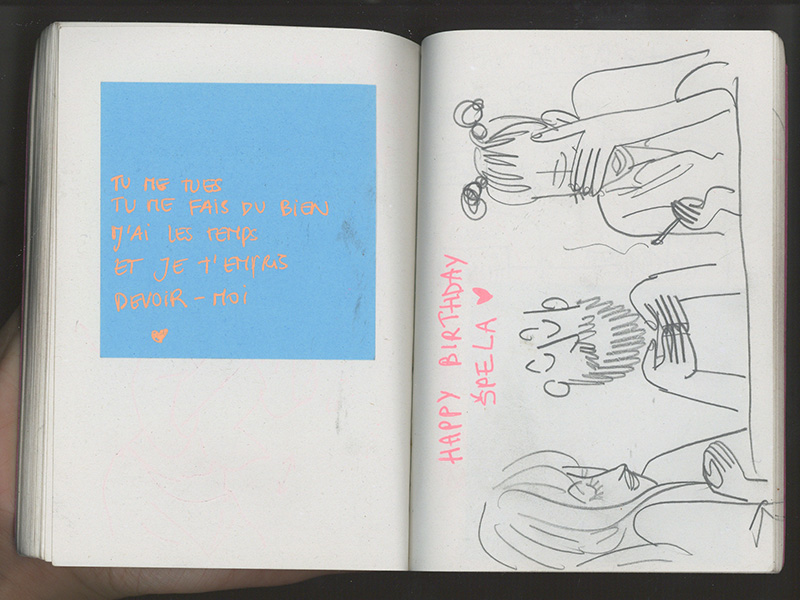 TU ME TUES
TU ME FAIS DU BIEN
J'AI LES TEMPS
ET JE T'EMPRIS
DEVOIR-MOI
HAPPY BIRTHDAY
ŠPELA